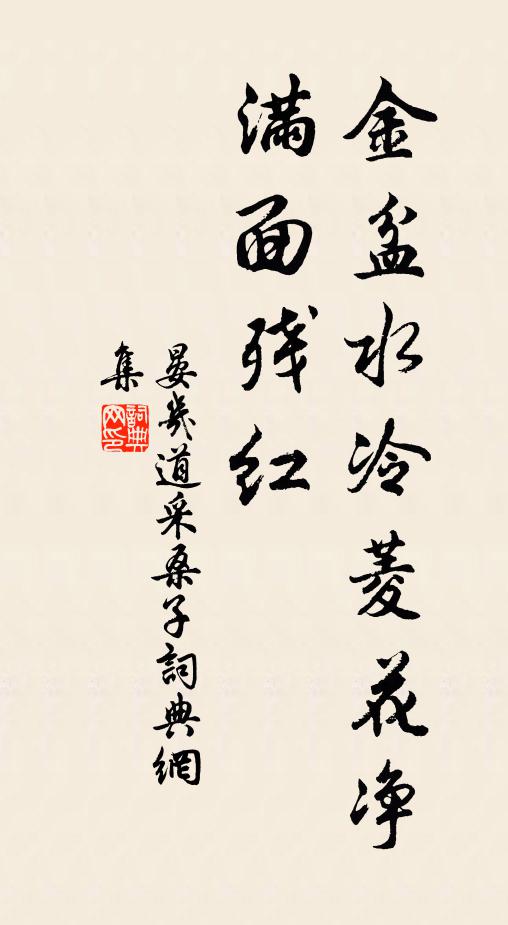 金盆水冷菱花净
满面残红
晏幾道采桑子詞典網
集
詞典网印